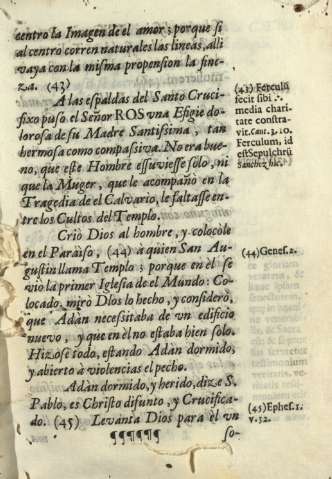 centro la Imagen de el amor; porque si
al centro corren naturales las lineas, alli
vaya con la misma propension la fine-
za. (43)
A las espaldas del Santo Cruci-
fixo puso el Señor ROS vna Efigie do-
lorosa de su Madre Santissima, tan
hermosa como compassiva. No era bue-
no, que este Hombre estuviesse solo, ni
que la Muger, que le acompañò en la
Tragedia de el Calvario, le faltasse en-
tre los Cultos del Templo.
Criò Dios al hombre, y colocòle
en el Paraiso, (44) à quien San Au-
gustin llama Templo; porque en èl se
viò la primer Iglesia de el Mundo: Co-
locado, mirò Dios lo hecho, y considerò,
que Adàn necessitaba de vn edificio
nuevo, y que en èl no estaba bien solo.
Hizose todo, estando Adàn dormido,
y abierto à violencias el pecho.
Adàn dormido, y herido, dize S.
Pablo, es Christo difunto, y Crucifica-
do. (45) Levanta Dios para èl vn
¶¶¶¶¶¶ so-
(43) Ferculū
fecit sibi
media chari-
tate constra-
vit. Cant. 3. 10.
Ferculum, id
est Sepulchrū
Sanchez hîc.
(44) Genes. 2.
(45) Ephes. 1.
v. 32.